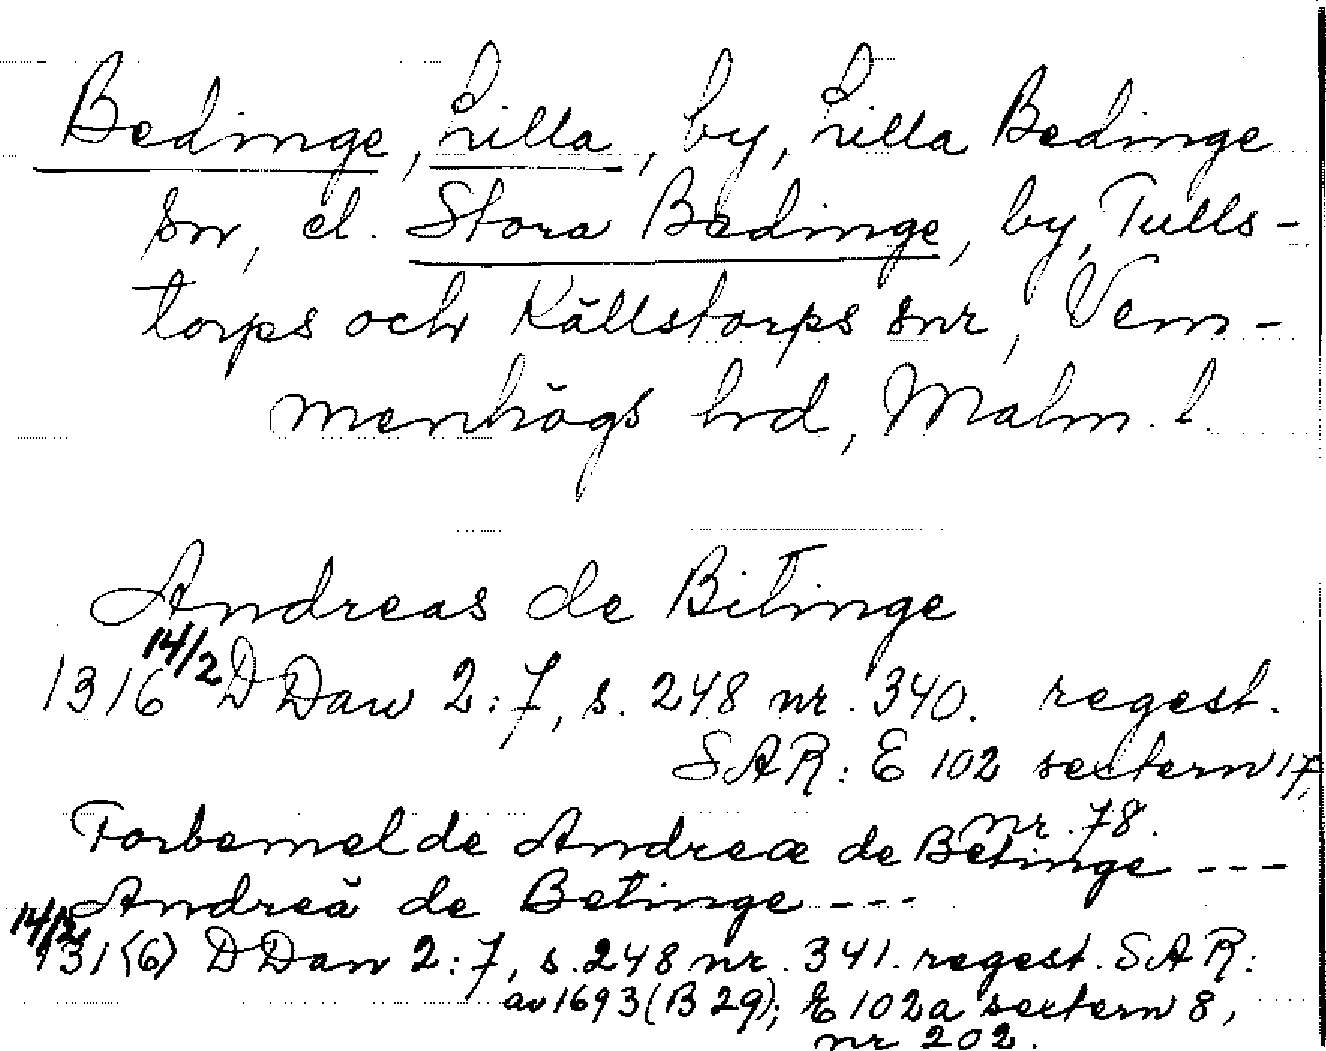 Bedinge, Lilla, by, Lilla Bedinge
sn, el. Stora Bedinge, by, Tulls-
torps och Källstorps snr, Vem-
menhögs hd, Malm. l.
Andreas de Bitinge
1316 14/2 DDan 2:7, s. 248 nr. 340. regest.
SAR: E 102 sextern 17,
nr. 78.
Forbemelde Andreæ de Betinge ---
Andreä de Betinge ---
14/2 131(6) DDan 2:7, s. 248 nr. 341. regest. SAR:
av 1693 (B 29); E 102a sextern 8,
nr 202.